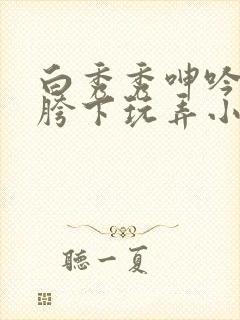 白秀秀呻吟
胯下玩弄小
聽一夏